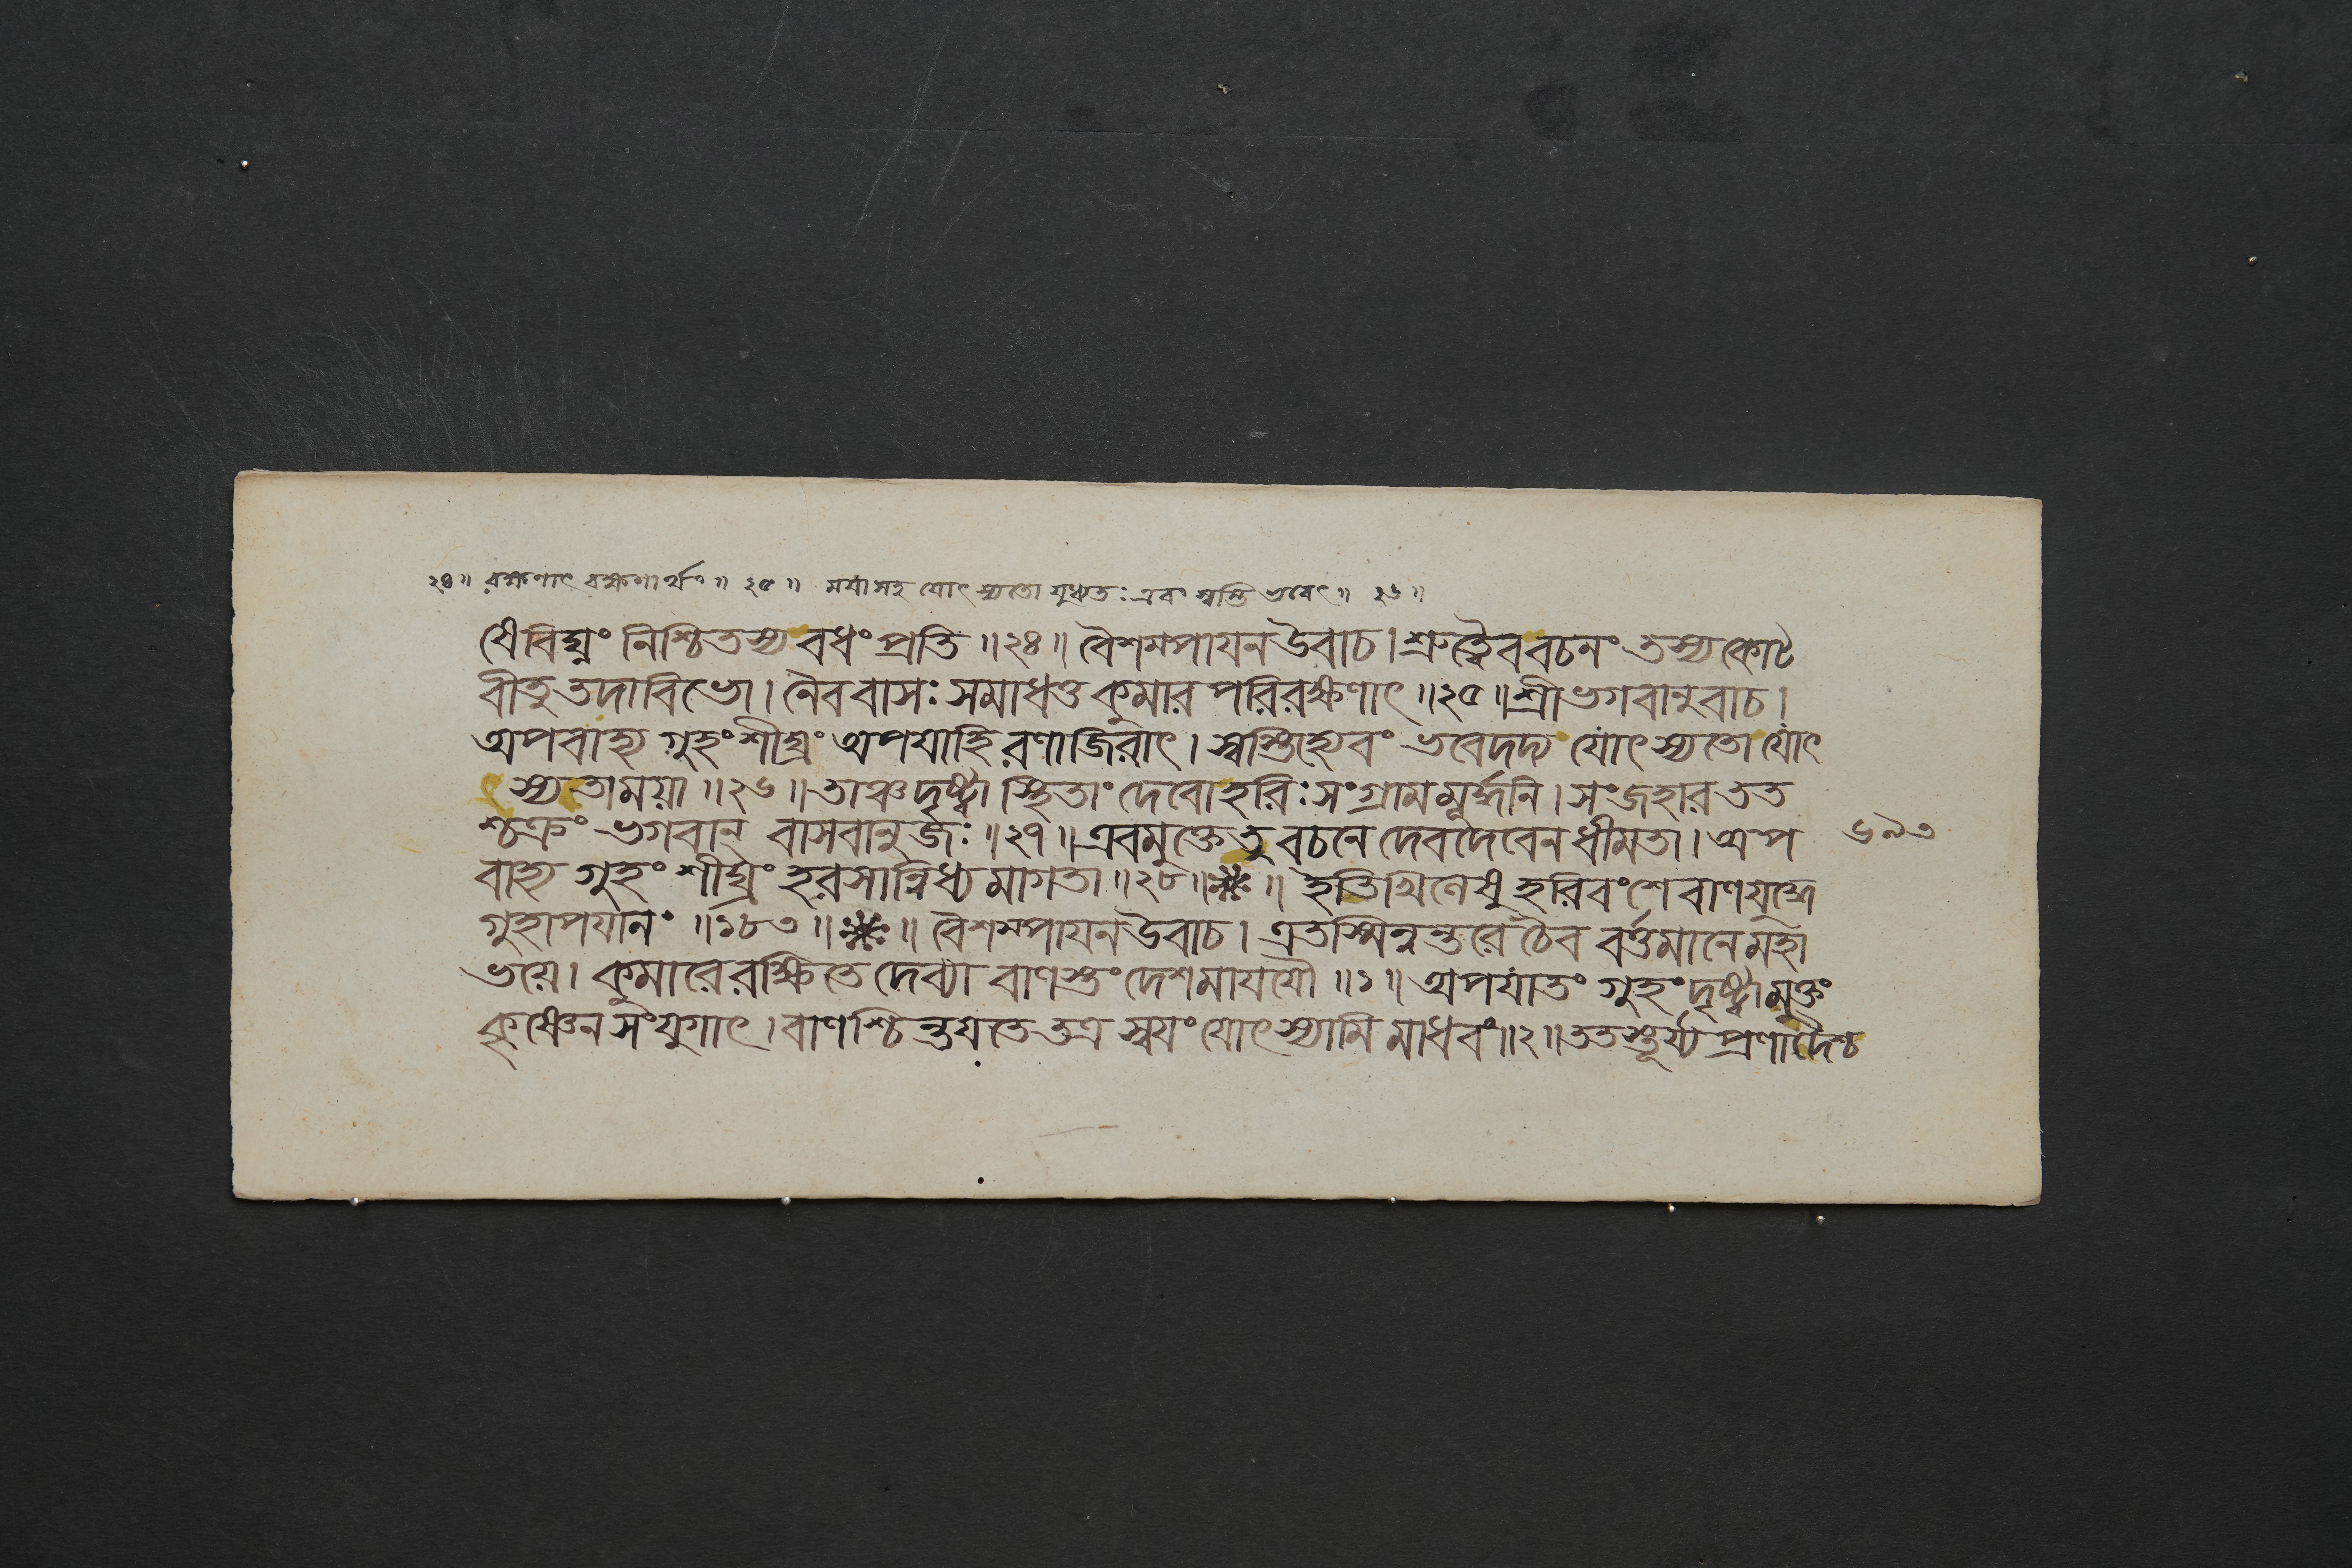 ২৪॥ রক্ষণাৎ রক্ষণার্থং॥ ২৫॥ ময়া সহ যোৎস্যতো যুধ্যতঃ এবং স্বস্তি ভবেৎ॥ ২৬॥
যেবিঘ্নং নিশ্চিতস্য বধং প্রতি॥২৪॥ বৈশম্পায়ন উবাচ। শ্রুত্বৈব বচনং তস্য কোট
বীতু তদাবিভো। নৈব বাসঃ সমাধত্ত কুমার পরিরক্ষণাৎ॥২৫॥ শ্রীভগবানুবাচ।
অপবাহ্য গুহং শীঘ্রং অপযাহি রণাজিরাৎ। স্বস্তিহ্যেবং ভবেদদ্য যোৎস্যতো যোৎ
স্যতাময়া॥২৬॥ তাঞ্চদৃষ্ট্বা স্থিতাং দেবোহরিঃ সংগ্রামমূর্দ্ধনি। সংজহার তত
শ্চক্রং ভগবান্ বাসবানুজঃ॥২৭॥ এবমুক্তেতু বচনে দেবদেবেন ধীমতা। অপ
৬৯৩
বাহ্য গুহং শীঘ্রং হরসান্নিধ্যমাগতা॥২৮॥ ॥ ইতিখিলেষু হরিবংশে বাণযুদ্ধে
গুহাপযানং॥১৮৩॥ ॥ বৈশম্পায়ন উবাচ। এতস্মিন্নন্তরে চৈব বর্ত্তমানে মহা
ভয়ে। কুমারে রক্ষিতে দেব্যা বাণস্তং দেশমাযযৌ॥১॥ অপযাতং গুহং দৃষ্ট্বা মুক্তং
কৃষ্ণেন সংযুগাৎ। বাণশ্চিন্তয়তে তত্র স্বয়ং যোৎস্যামি মাধবং॥২॥ ততস্তূর্য্য প্রণাদৈশ্চ